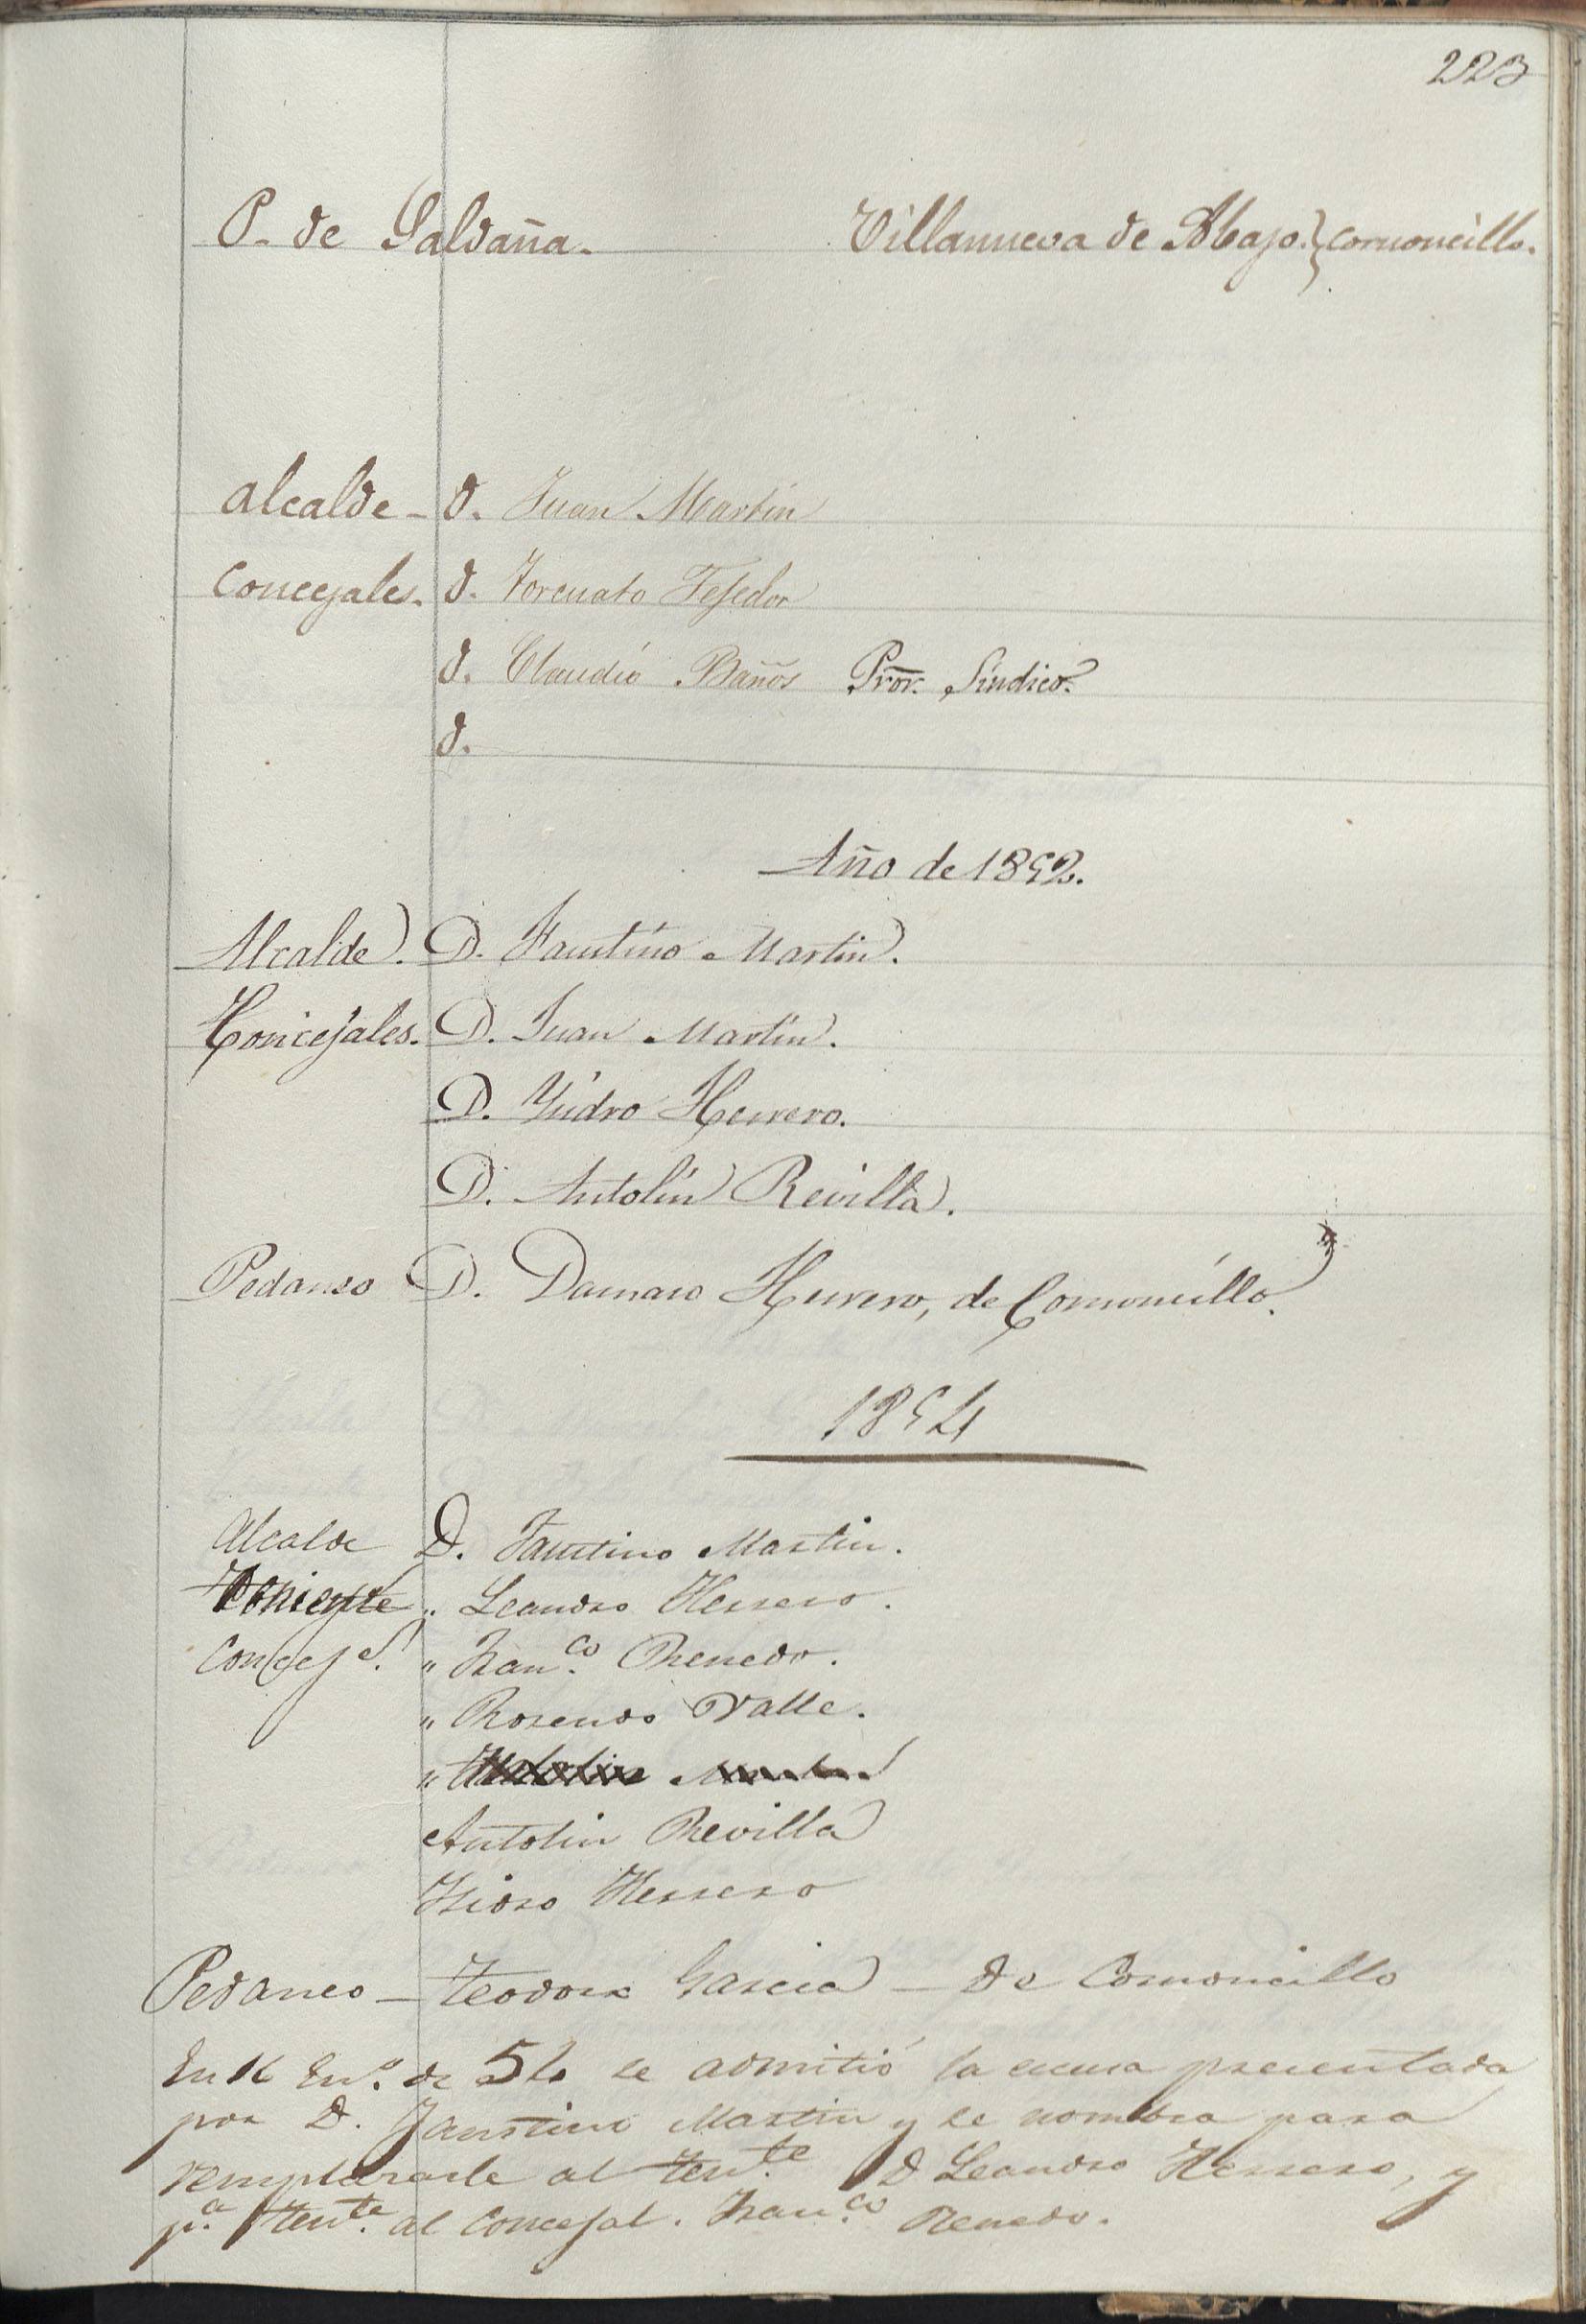 223
P. de Saldaña. Villanueva de Abajo. } Cornoncillo.
Alcalde - D. Juan Martin
Concejales. D. Torcuato Tejedor
D. Claudio Baños Pror. Síndico.
D.
Año de 1852.
Alcalde. D. Faustino Martin.
Concejales. D. Juan Martin.
D. Ysidro Herrero.
D. Antolín Revilla.
Pedaneo D. Damaso Herrero, de Cornoncillo.
1854
Alcalde D. Faustino Martin.
Teniente " Leandro Herrero.
Concejs. " Franco. Renedo.
" Rosendo Valle.
"
Antolin Revilla
Isidro Herrero
Pedaneo - Teodoro Garcia - de Cornoncillo
En 16 Eno. de 54 se admitió la escusa presentada
por D. Faustino Martin y se nombra para
remplazarle al tente. D Leandro Herrero, y
pa. tente. al Concejal. Franco. Renedo.